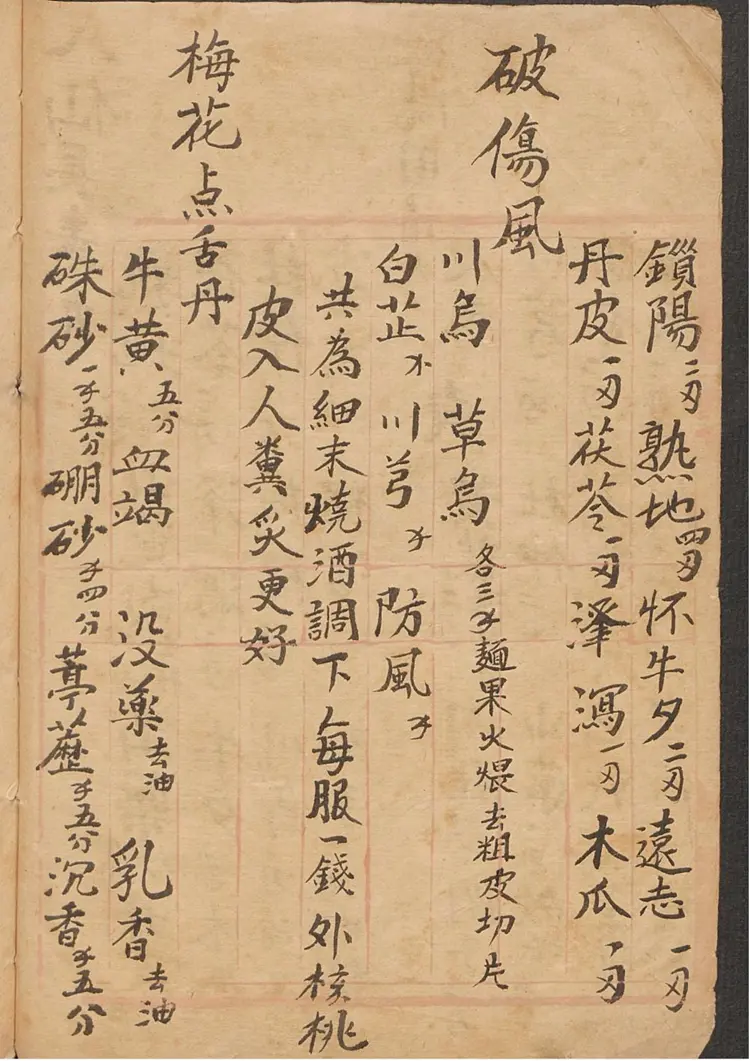 鎖陽二刄熟地四刄怀牛夕二刄遠志一刄
丹皮一刄茯苓一刄澤瀉一刄木瓜一刄
破傷風
川烏 草烏 各三才麵果火煨去粗皮切片
白芷才 川芎才 防風才
共為細末燒酒調下每服一錢外核桃
皮入人糞炙更好
梅花点舌丹
牛黄五分血竭 没藥去油 乳香去油
硃砂一才五分硼砂才四分葶藶才五分沉香才五分